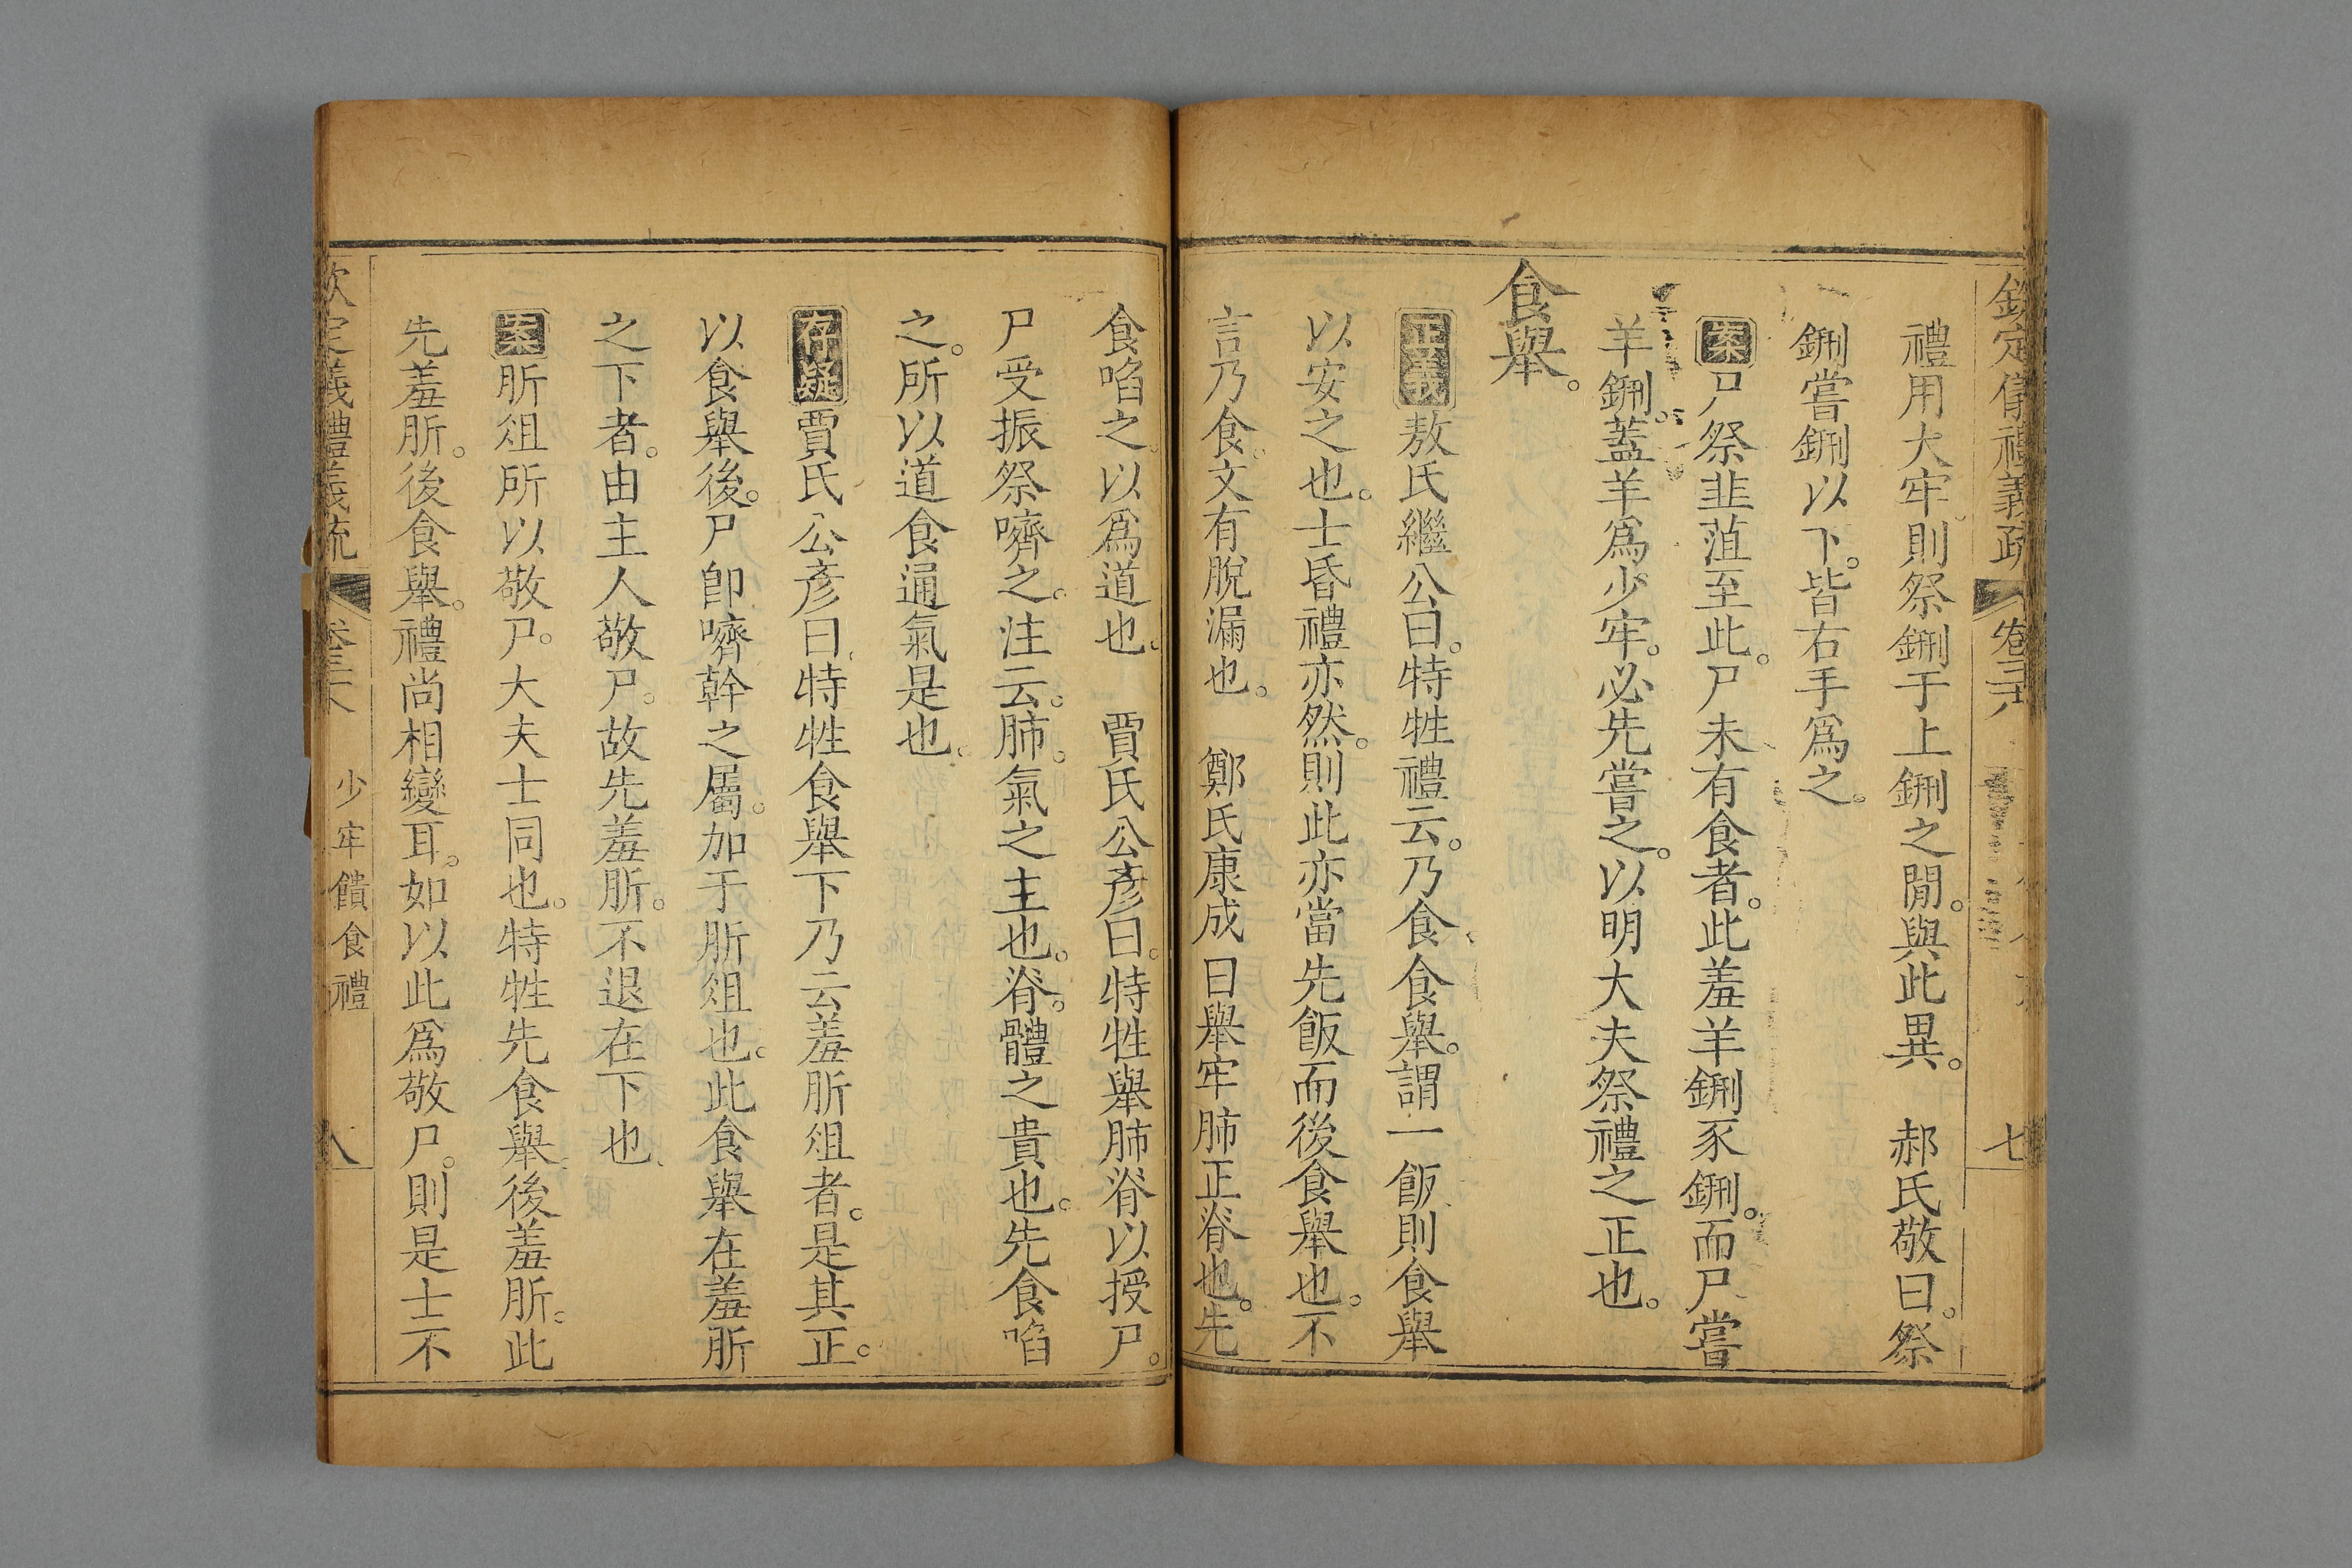 欽定儀禮義疏 卷三十八 七
禮用大牢則祭鉶于上鉶之閒。與此異。 郝氏敬曰。祭
鉶嘗鉶以下。皆右手爲之。
案尸祭韭菹至此。尸未有食者。此羞羊鉶豕鉶。而尸嘗
羊鉶。蓋羊爲少牢。必先嘗之。以明大夫祭禮之正也。
食舉。
正義敖氏繼公曰。特牲禮云。乃食食舉。謂一飯則食舉
以安之也。士昏禮亦然。則此亦當先飯而後食舉也。不
言乃食。文有脫漏也。 鄭氏康成曰舉牢肺正脊也。先
食啗之。以爲道也。 賈氏公彥曰。特牲舉肺脊以授尸。
尸受振祭嚌之。注云。肺。氣之主也。脊。體之貴也。先食啗
之。所以道食通氣是也。
存疑賈氏公彥曰特牲食舉下乃云羞肵俎者。是其正。
以食舉後。尸卽嚌幹之屬。加于肵俎也。此食舉在羞肵
之下者。由主人敬尸。故先羞肵。不退在下也
案肵俎所以敬尸。大夫士同也。特牲先食舉後羞肵。此
先羞肵。後食舉。禮尚相變耳。如以此爲敬尸。則是士不
欽定儀禮義疏 卷三十八 少牢饋食禮 八